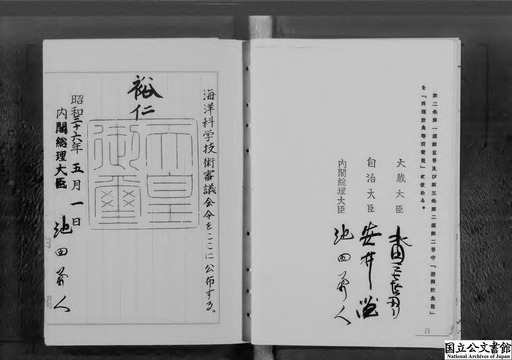 第二条第一項第五号及び第三条第二項第二号中「遊興飲食税」
を「料理飲食等消費税」に改める。
大蔵大臣 水田三喜男
自治大臣 安井謙
内閣総理大臣 池田勇人
海洋科学技術審議会令をここに公布する。
裕仁
天皇
御璽
昭和三十六年五月一日
内閣総理大臣 池田勇人
国立公文書館
National Archives of Japan